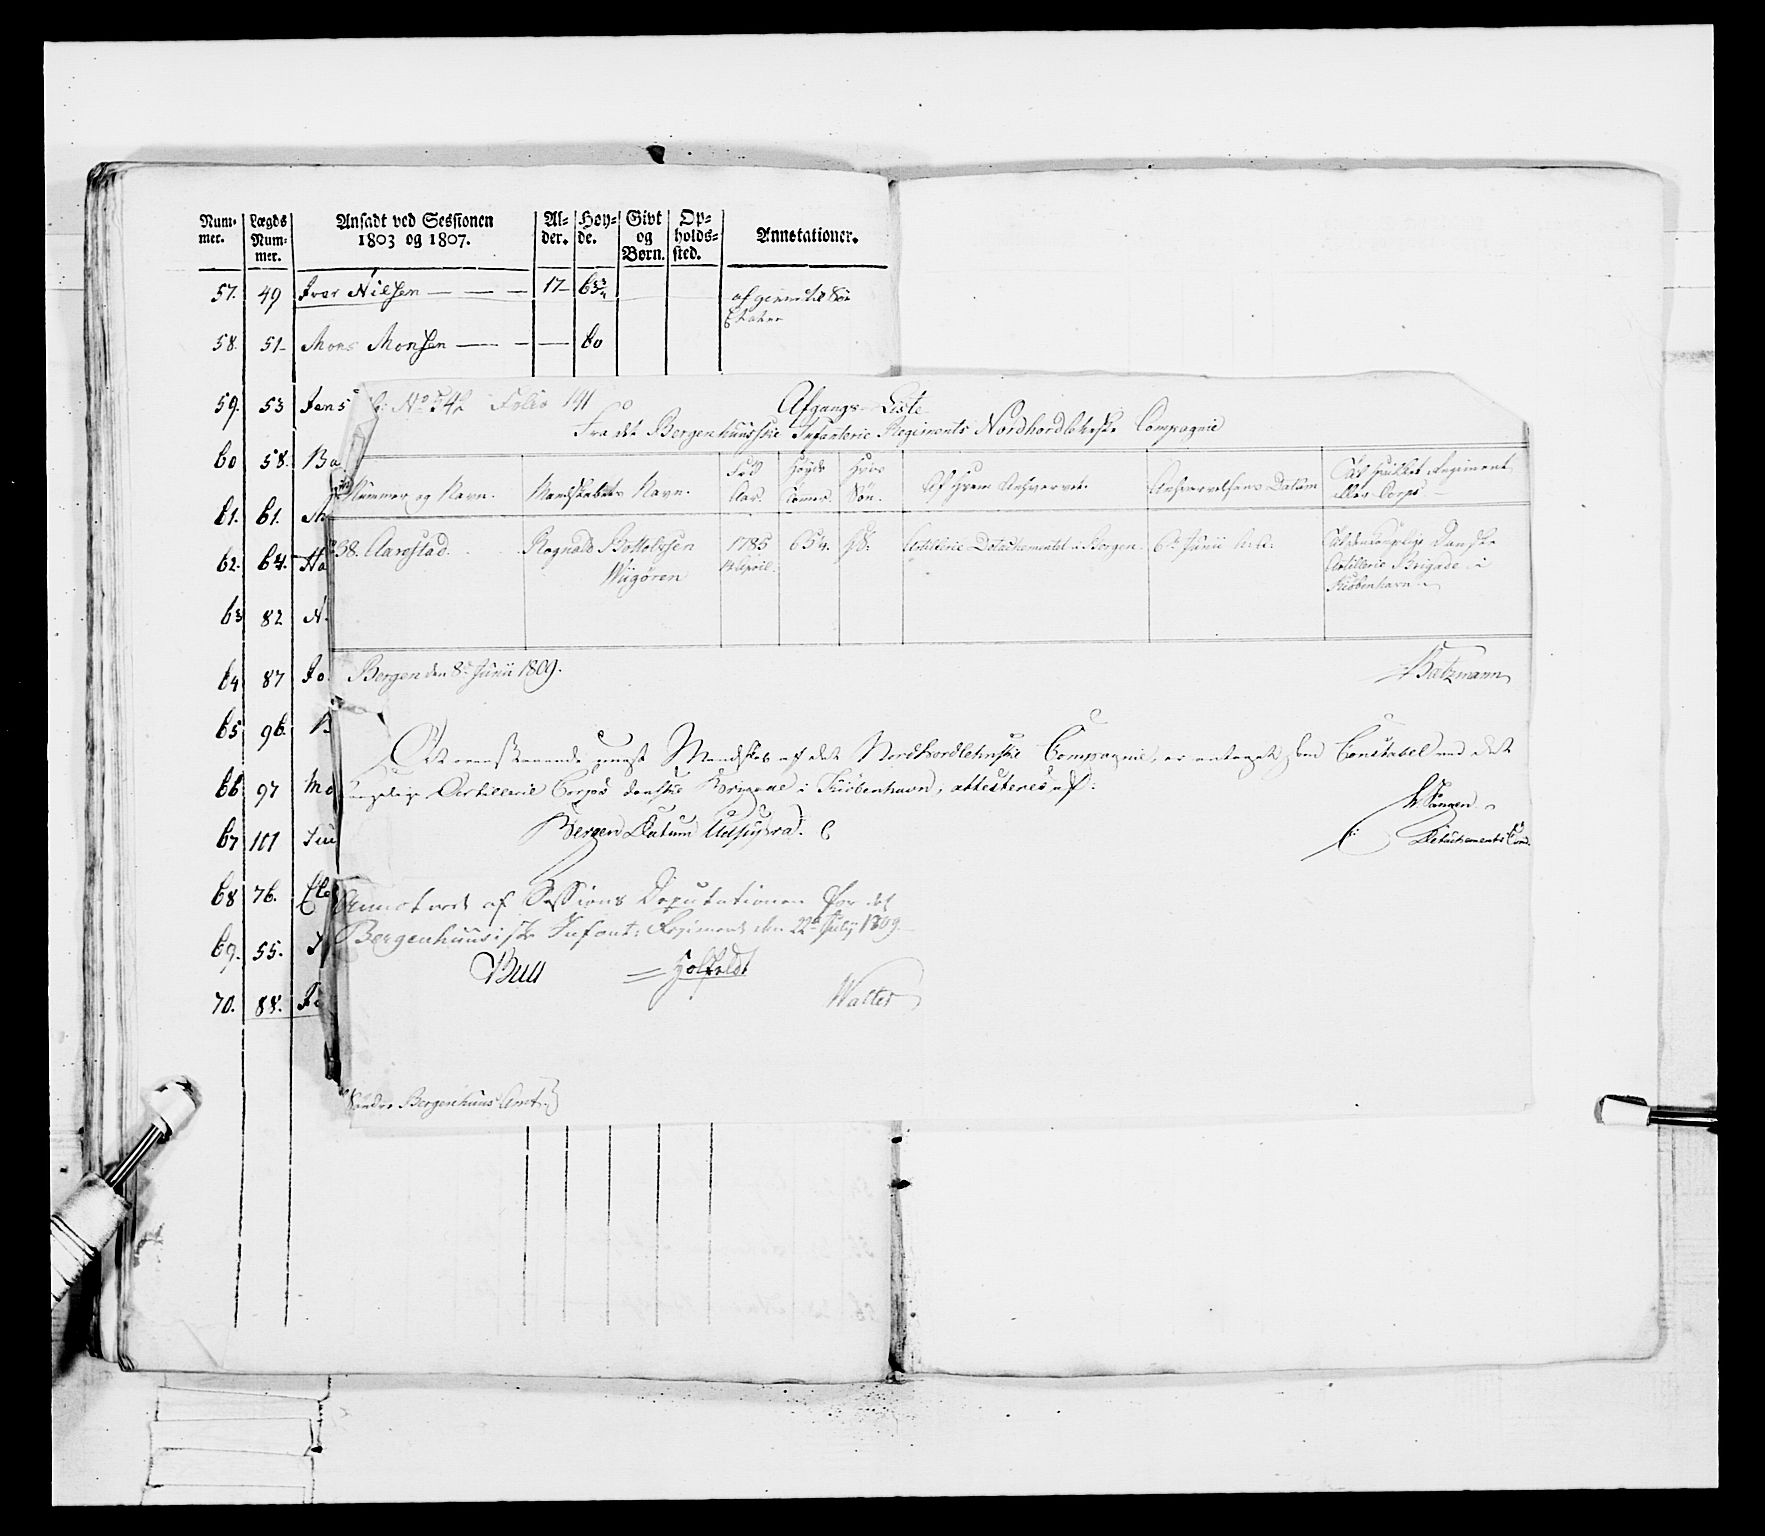 Num-
mer.
Lægds
Num-
mer.
Ansadt ved Sessionen
1803 og 1807.
Al-
der.
Høy-
de.
Givt
og
Børn.
Op-
holds-
sted.
Annotationer.
57. 49 Iver Nielsen 17
58. 51 Mons Monsen 60
59. 53 Jens
60 58. Ba
61. 61.
62. 64. Ha
63 82 N.
64 87 Jo
65 96.
66 97 Mo
67 101
68 76.
69. 55.
70. 88.
No 542 Folio 141
Afgangs-Liste
Fra det Bergenhuusske Infanterie Regiments Nordhordlehnske Compagnie
Nummer og Navn. Mandskabets Navn. Fød Aar. Høyde Tomer. Hvis Søn. Af hvem Anhvervet. Anhvervelsens Datum Til hvilket Regiment
eller Corps
38. Aarestad. Rognald Bottolvsen 1785 65¼. Artillerie Detachementet i Bergen. 6te Junii Til det kongelige Danske
Wiigøren April. Artillerie Brigade i
Kiøbenhavn
Bergen den 8de Junii 1809.
At ovenstaaende Mandskab af det Nordhordlehnske Compagnie, er antaget som Constabel ved det
kongelige Artillerie Corps danske Brigade i Kiøbenhavn, attesteres af:
Bergen Datum Udsupra.
Detachements Com.
Annoteret af Sessions Deputationen for det
Bergenhuusiske Infant: Regiment den 22de July 1809
Bull Holfeldt
Walter
Søndre Bergenhuus Amt.